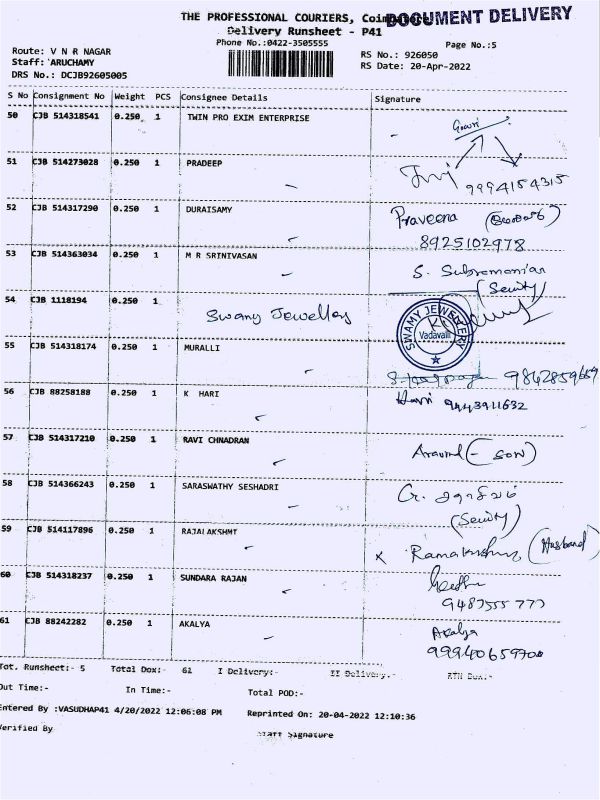 THE PROFESSIONAL COURIERS, Coimbatore
DOCUMENT DELIVERY
Delivery Runsheet - P41
Phone No.:0422-3505555
Page No.:5
Route: V N R NAGAR
RS No.: 926050
Staff: ARUCHAMY
RS Date: 20-Apr-2022
DRS No.: DCJB92605005
S No Consignment No Weight PCS Consignee Details Signature
50 CJB 514318541 0.250 1 TWIN PRO EXIM ENTERPRISE
51 CJB 514273028 0.250 1 PRADEEP
9994154315
52 CJB 514317290 0.250 1 DURAISAMY Praveena
8925102978
53 CJB 514363034 0.250 1 M R SRINIVASAN S. Subramanian
54 CJB 1118194 0.250 1 Swamy Jewellery
SWAMY JEWELLERY
Vadavalli
55 CJB 514318174 0.250 1 MURALLI
9842859669
56 CJB 88258188 0.250 1 K HARI Hari 9443911632
57 CJB 514317210 0.250 1 RAVI CHNADRAN Aravind (- SON)
58 CJB 514366243 0.250 1 SARASWATHY SESHADRI
59 CJB 514117896 0.250 1 RAJALAKSHMI x Ramakrishna (Husband)
60 CJB 514318237 0.250 1 SUNDARA RAJAN
9487555777
61 CJB 88242282 0.250 1 AKALYA Akalya
Tot. Runsheet:- 5 Total Dox:- 61 I Delivery:- II Delivery:- RTN Dox:-
Out Time:- In Time:- Total POD:-
Entered By :VASUDHAP41 4/20/2022 12:06:08 PM Reprinted On: 20-04-2022 12:10:36
Verified By Staff Signature